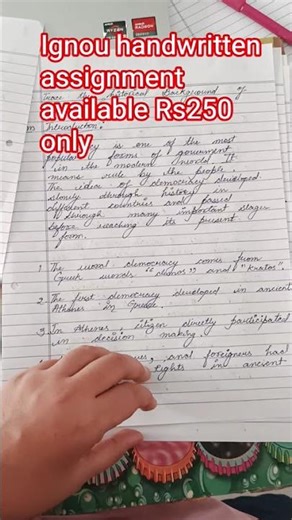 Ignou handwritten
assignment
available Rs250
only
Trace the historical Background of
Introduction:
is one of the most
popular forms of government
in the modern world. It
means rule by the people.
The idea of democracy developed
slowly through history in
different countries and passed
through many important stages
before reaching its present
form.
1. The word democracy comes from
Greek words "demos" and "kratos".
2. The first democracy developed in ancient
Athens in Greece.
3. In Athens, citizen directly participated
in decision making.
and foreigners had
rights in ancient